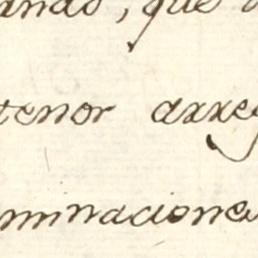 ando, que
tenor arreg
minaciones